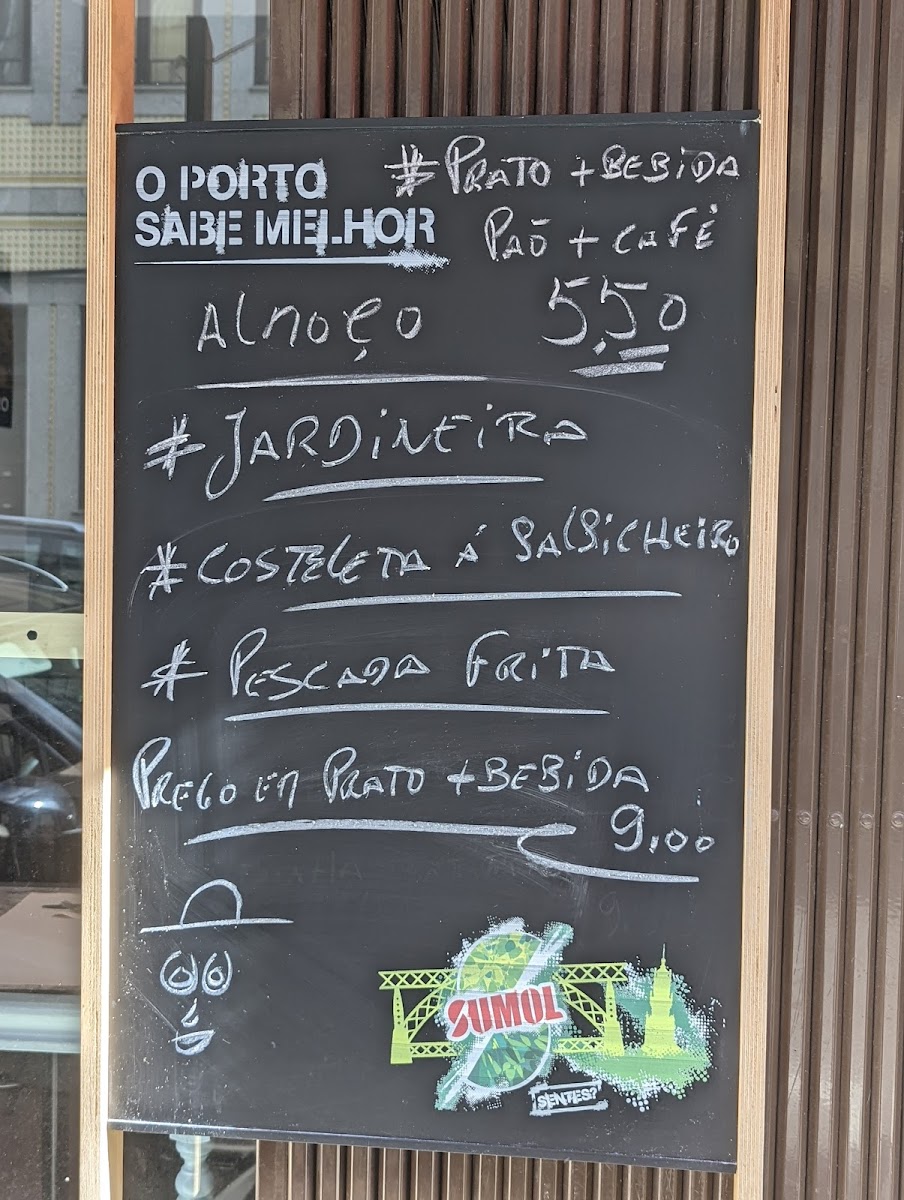 O PORTO
SABE MELHOR
# PRATO + BEBIDA
PAÕ + CAFÉ
ALMOÇO
5,50
# JARDINEIRA
# COSTELETA Á SALSICHEIRO
# PESCADA FRITA
PREGO EM PRATO + BEBIDA
9,00
SUMOL
SENTES?